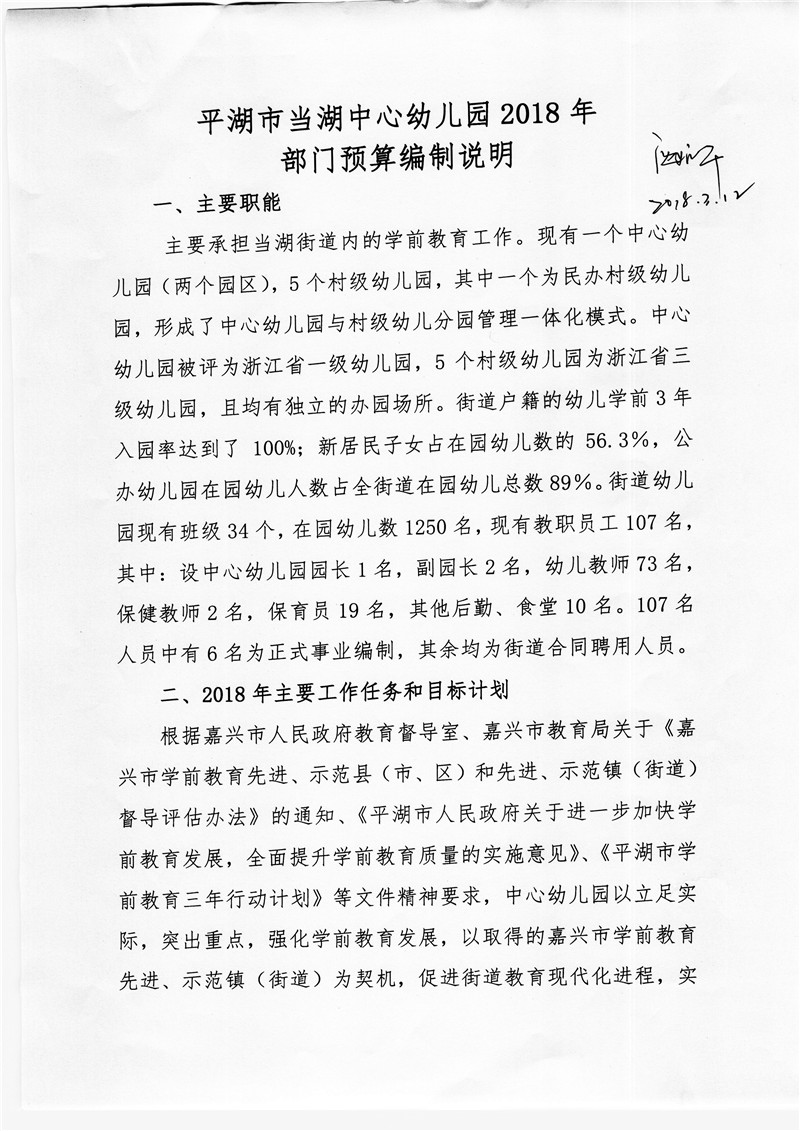 平湖市当湖中心幼儿园2018年
部门预算编制说明
2018.3.12
一、主要职能
主要承担当湖街道内的学前教育工作。现有一个中心幼
儿园（两个园区），5个村级幼儿园，其中一个为民办村级幼儿
园，形成了中心幼儿园与村级幼儿分园管理一体化模式。中心
幼儿园被评为浙江省一级幼儿园，5个村级幼儿园为浙江省三
级幼儿园，且均有独立的办园场所。街道户籍的幼儿学前3年
入园率达到了 100%；新居民子女占在园幼儿数的 56.3%，公
办幼儿园在园幼儿人数占全街道在园幼儿总数89%。街道幼儿
园现有班级34个，在园幼儿数1250名，现有教职员工107名，
其中：设中心幼儿园园长1名，副园长2名，幼儿教师73名，
保健教师2名，保育员19名，其他后勤、食堂10名。107名
人员中有6名为正式事业编制，其余均为街道合同聘用人员。
二、2018年主要工作任务和目标计划
根据嘉兴市人民政府教育督导室、嘉兴市教育局关于《嘉
兴市学前教育先进、示范县（市、区）和先进、示范镇（街道）
督导评估办法》的通知、《平湖市人民政府关于进一步加快学
前教育发展，全面提升学前教育质量的实施意见》、《平湖市学
前教育三年行动计划》等文件精神要求，中心幼儿园以立足实
际，突出重点，强化学前教育发展，以取得的嘉兴市学前教育
先进、示范镇（街道）为契机，促进街道教育现代化进程，实